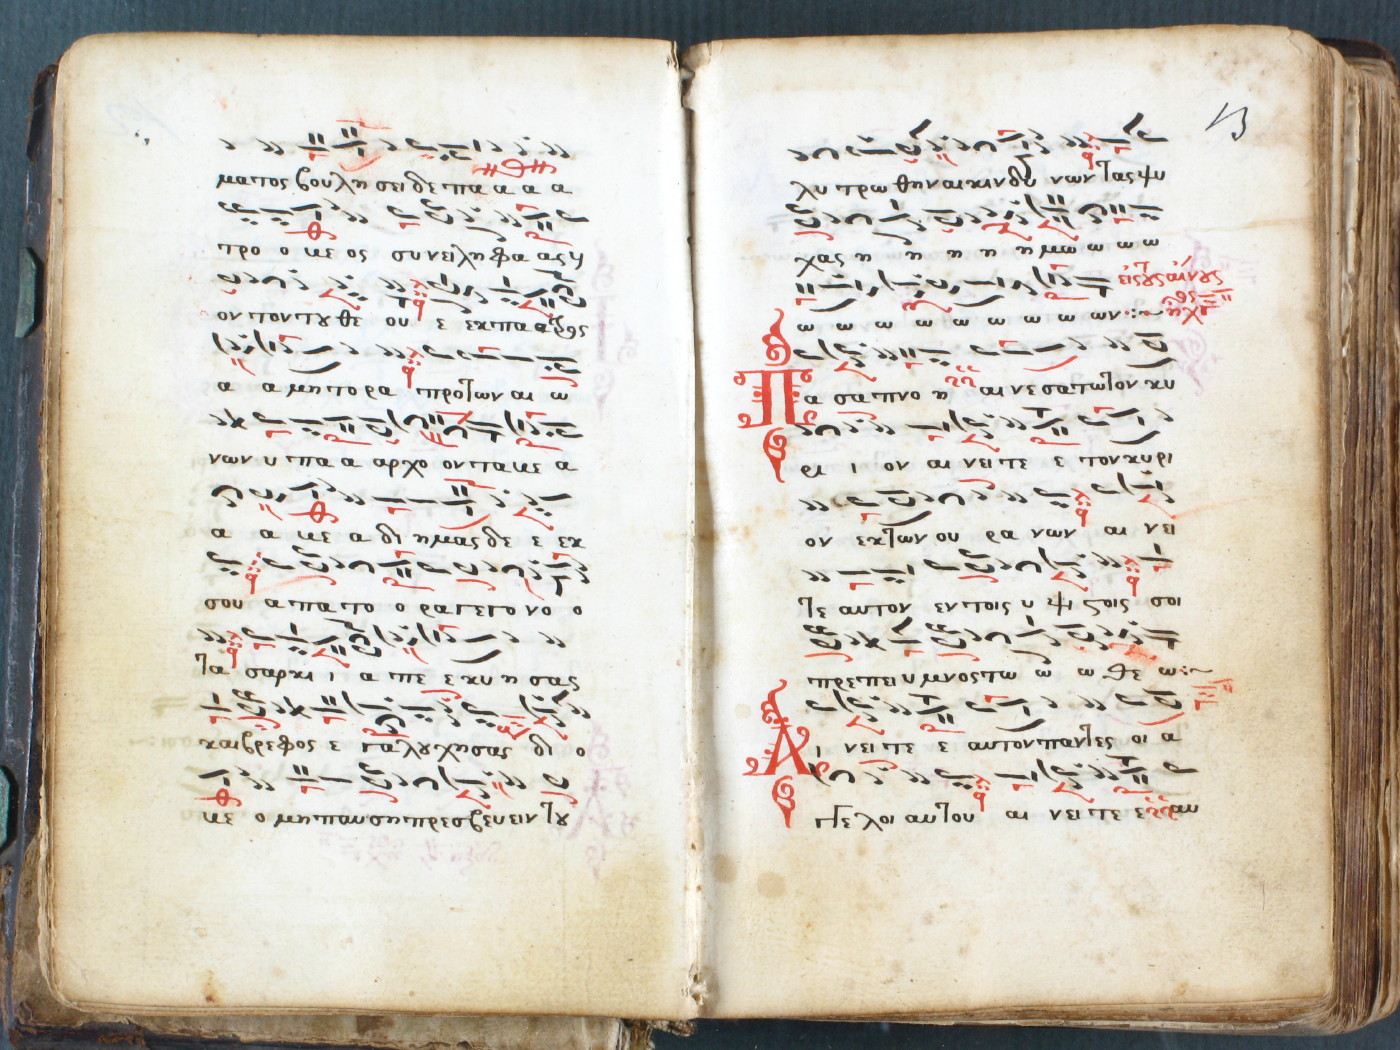 ματος βουλησει δε πα α α α
προ ο με ος συνειληφα ας υ
ον τον του θε ου ε εκ πα α τρος
α α μητορα προ των αι ω
νων υ πα α αρχο οντα με α
α α με α δι ημας δε ε εκ
σου α πα το ο ρα γεγο νο ο
τα σαρκι ι α πε εκυησας
και βρεφος ε γαλουχησας δι ο
με ο μη παυση πρεσβευειν του
13
λυ τρω θηναι κινδυ νων τας ψυ
χας η η η η η μω ω ω ω
εις τους αινους
ω ω ω ω ω ω ω ω ων
ηχος
Πα σα πνο η αι νεσατω τον κυ
ρι ι ον αι νει τε ε τον κυρι
ον εκ των ου ρα νων αι νει
τε αυτον εν τοις υ ψι στοις σοι
πρεπει υμνος τω ω ω θε ω
Αι νει τε ε αυτον παντες οι α
γγελοι αυτου αι νει τε ε αυ